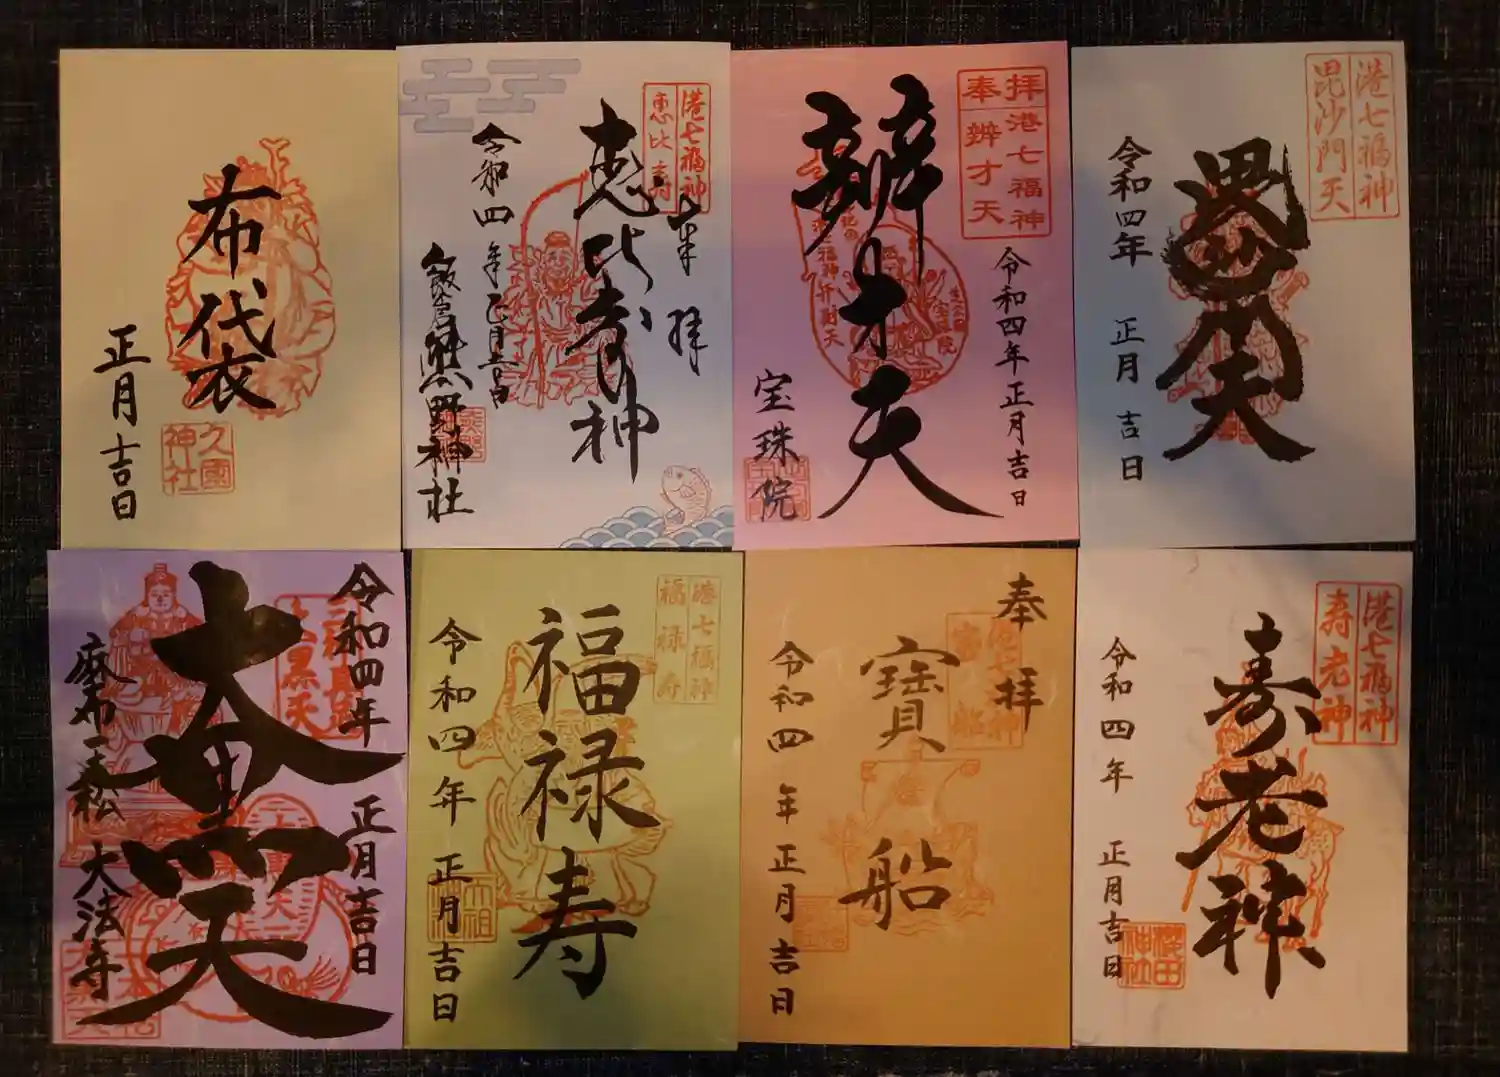 布袋衣
正月吉日
久國
神社
港七福神
恵比寿
奉拝
恵比寿神
令和四年正月吉日
飯倉熊野神社
拝港七福神
奉辨才天
辨才天
令和四年正月吉日
宝珠院
港七福神
毘沙門天
毘沙門天
令和四年 正月 吉日
令和四年 正月吉日
大黒天
麻布一本松 大法寺
港七福神
福禄寿
福禄寿
令和四年 正月吉日
奉拝
寶船
令和四年 正月吉日
港七福神
寿老神
寿老神
令和四年 正月吉日
櫻田
神社